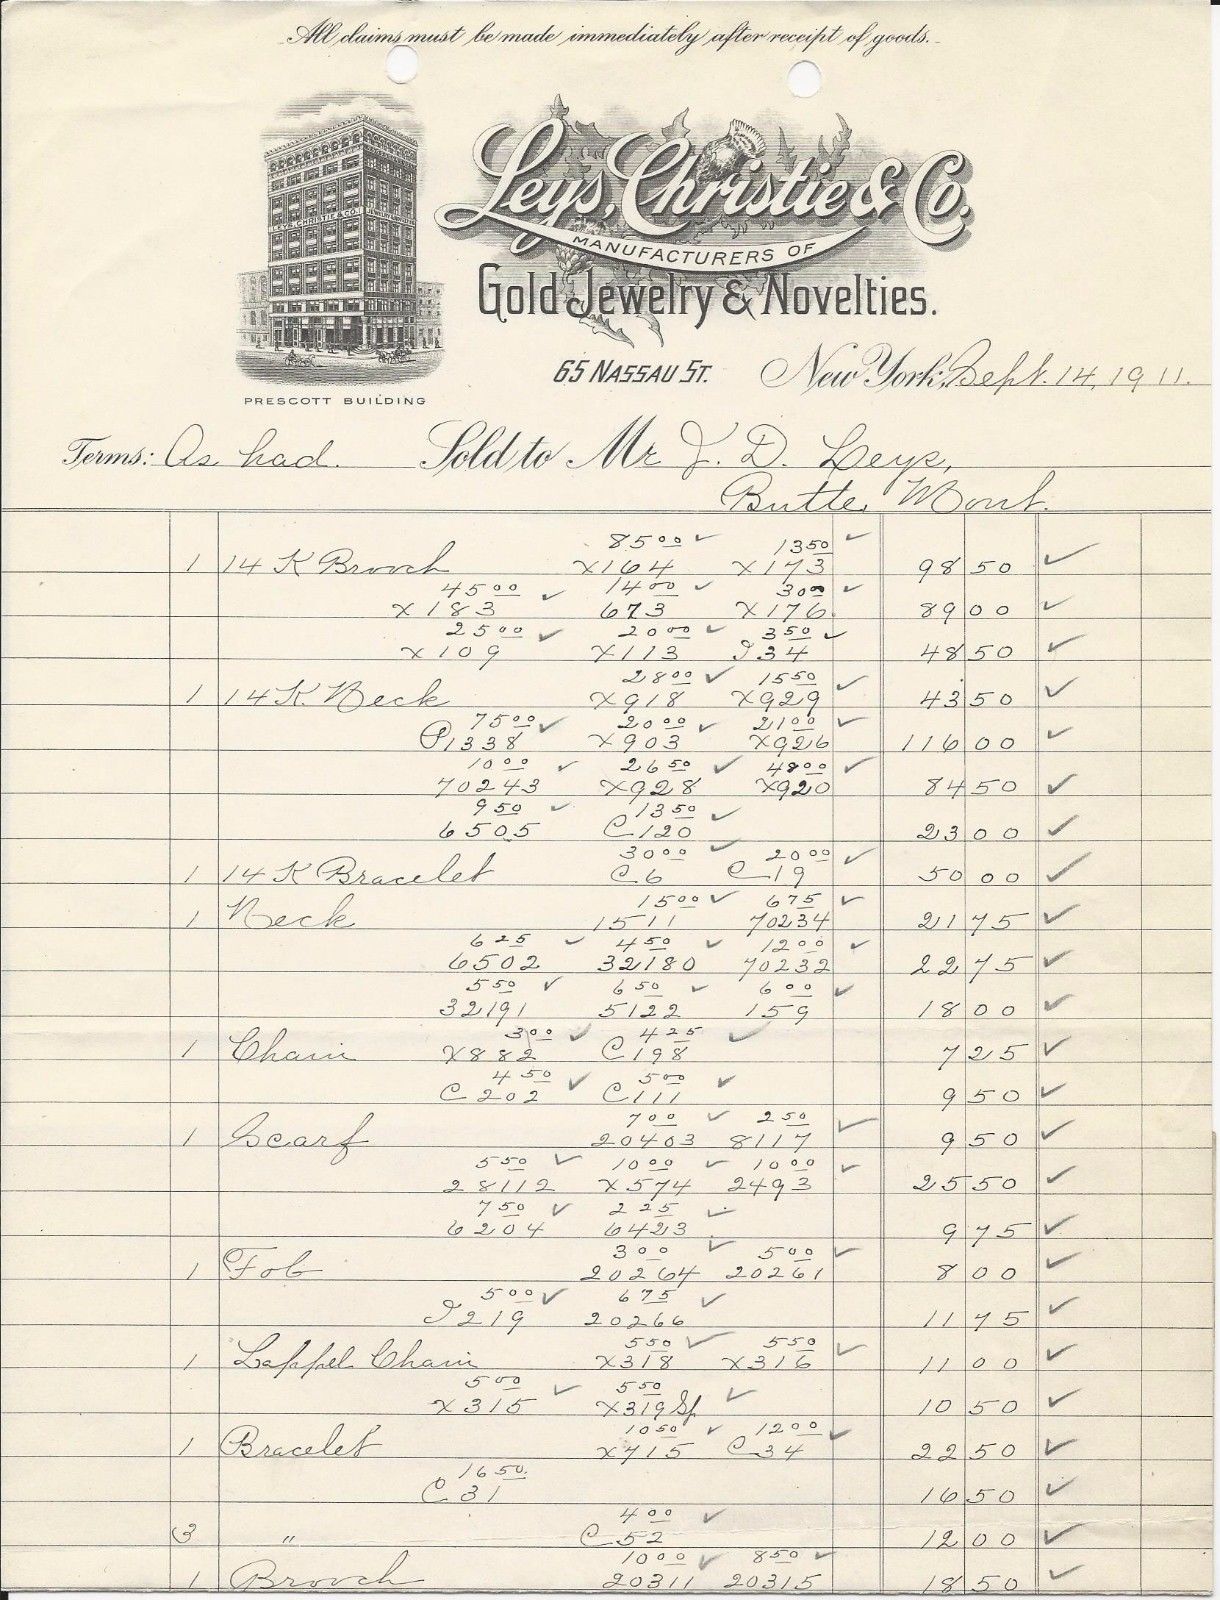 All claims must be made immediately after receipt of goods.
Leys, Christie & Co.
MANUFACTURERS OF
Gold Jewelry & Novelties.
LEYS, CHRISTIE & CO.
65 NASSAU ST. New York, Sept. 14, 1911.
PRESCOTT BUILDING
Terms: As had. Sold to Mr J. D. Leys,
Butte, Mont.
85 00 ✓ 13 50 ✓
1 14 K Brooch X164 X173 98 50 ✓
45 00 ✓ 14 00 ✓ 30 00 ✓
X183 673 X176. 89 00 ✓
25 00 ✓ 20 00 ✓ 3 50 ✓
X109 X113 J34 48 50 ✓
28 00 ✓ 15 50 ✓
1 14 K. Neck X918 X929 43 50 ✓
75 00 ✓ 20 00 ✓ 21 00 ✓
P1338 X903 X926 116 00 ✓
10 00 ✓ 26 50 ✓ 48 00 ✓
70243 X928 X920 84 50 ✓
9 50 ✓ 13 50 ✓
6505 C120 23 00 ✓
30 00 ✓ 20 00 ✓
1 14 K Bracelet C6 C19 50 00 ✓
15 00 ✓ 6 75 ✓
1 Neck 1511 70234 21 75 ✓
6 25 ✓ 4 50 ✓ 12 00 ✓
6502 32180 70232 22 75 ✓
5 50 ✓ 6 50 ✓ 6 00 ✓
32191 5122 159 18 00 ✓
3 00 ✓ 4 25 ✓
1 Chain X882 C198 7 25 ✓
4 50 ✓ 5 00 ✓
C202 C111 9 50 ✓
7 00 ✓ 2 50 ✓
1 Scarf 20403 8117 9 50 ✓
5 50 ✓ 10 00 ✓ 10 00 ✓
28112 X574 2493 25 50 ✓
7 50 ✓ 2 25 ✓
6204 6423 9 75 ✓
3 00 ✓ 5 00 ✓
1 Fob 20264 20261 8 00 ✓
5 00 ✓ 6 75 ✓
J219 20266 11 75 ✓
5 50 ✓ 5 50 ✓
1 Lappel Chain X318 X316 11 00 ✓
5 00 ✓ 5 50 ✓
X315 X319 Sp 10 50 ✓
10 50 ✓ 12 00 ✓
1 Bracelet X715 C34 22 50 ✓
16 50.
C31 16 50 ✓
4 00 ✓
3 " C52 12 00 ✓
10 00 ✓ 8 50 ✓
1 Brooch 20311 20315 18 50 ✓